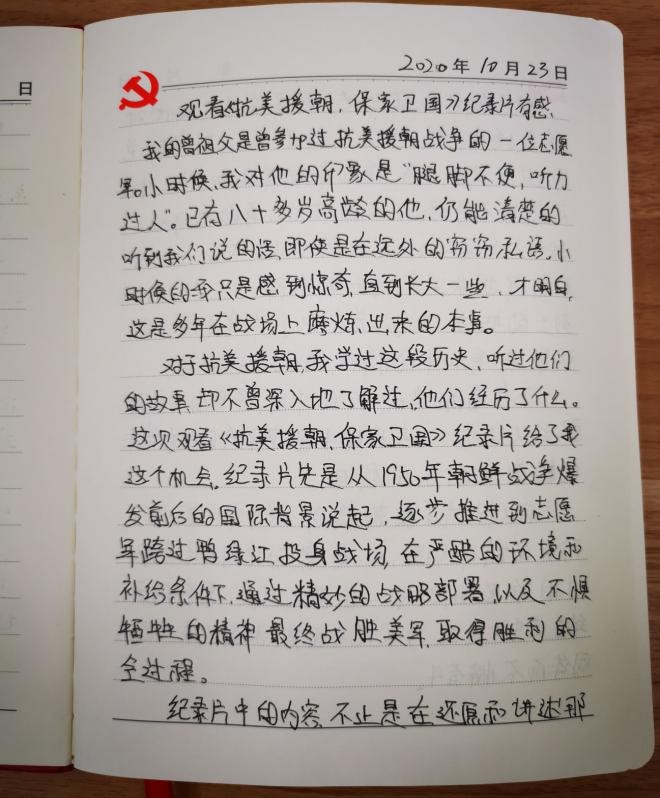 日
2020年10月23日
观看《抗美援朝,保家卫国》纪录片有感
我的曾祖父是曾参加过抗美援朝战争的一位志愿
军。小时候,我对他的印象是“腿脚不便,听力
过人”。已有八十多岁高龄的他,仍能清楚的
听到我们说的话,即使是在远处的窃窃私语。小
时候的我只是感到惊奇,直到长大一些,才明白,
这是多年在战场上磨炼出来的本事。
对于抗美援朝,我学过这段历史,听过他们
的故事,却不曾深入地了解过,他们经历了什么。
这次观看《抗美援朝,保家卫国》纪录片给了我
这个机会。纪录片先是从1950年朝鲜战争爆
发前后的国际背景说起,逐步推进到志愿
军跨过鸭绿江投身战场,在严酷的环境和
补给条件下,通过精妙的战略部署,以及不惧
牺牲的精神,最终战胜美军,取得胜利的
全过程。
纪录片中的内容,不止是在还原和讲述那